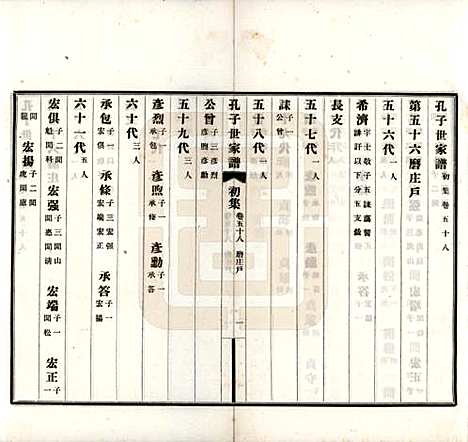 孔子世家譜 初集 卷五十八
第五十六磨庄戶
五十六代 一人
希濟 字士敬 子五 誠 藹 諒 訐 以下分五支敘
長支
五十七代 一人
諒 子一 公曾
五十八代 一人
公曾 子三 彦烈 彦煦 彦勳
五十九代 三人
孔子世家譜 初集 卷五十八 磨庄戶 一
彦烈 子一 承包 彦煦 子一 承條 彦勳 子一 承答
六十代 三人
承包 子一 宏俱 承條 子三 宏强 宏端 宏正 承答 子一 宏揚
六十一代 五人
宏俱 子二 聞魁 聞科 宏强 子三 聞山 聞惠 聞清 宏端 子一 聞松 宏正 子一
聞龍 宏揚 子二 聞虎 聞廒